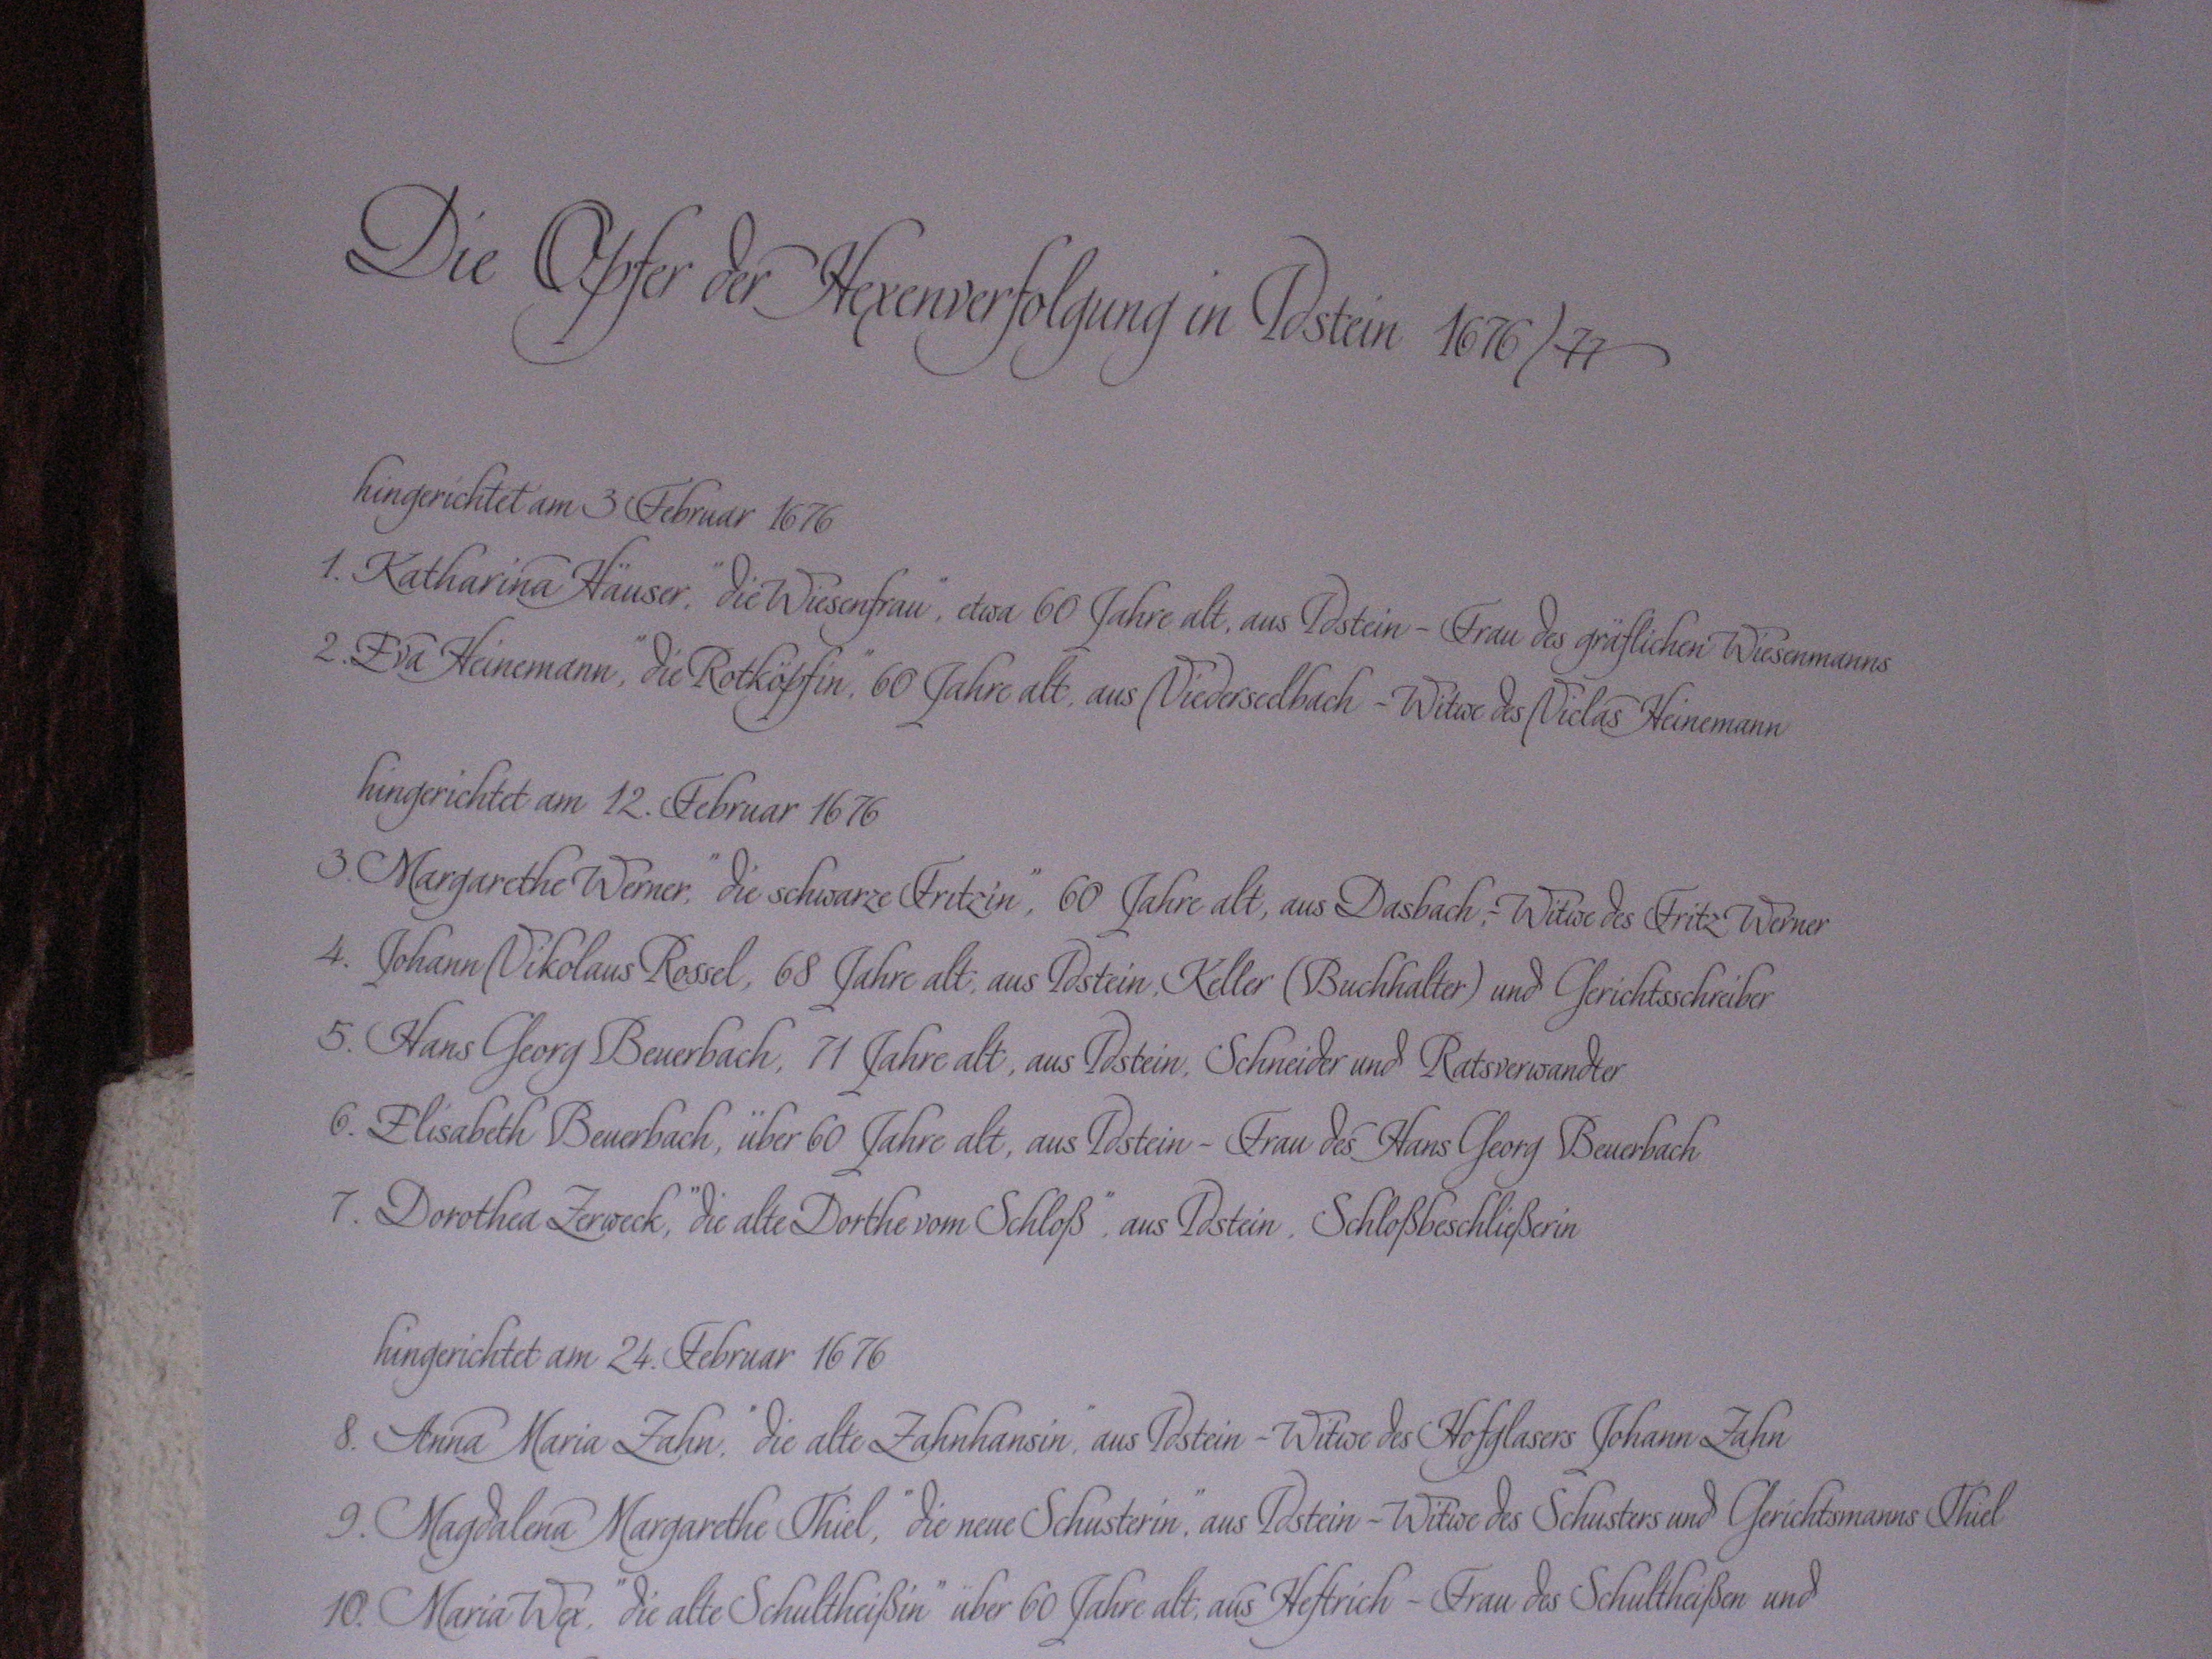 Die Opfer der Hexenverfolgung in Idstein 1676/77
hingerichtet am 3 Februar 1676
1. Katharina Häuser, "die Wiesenfrau", etwa 60 Jahre alt, aus Idstein - Frau des gräflichen Wiesenmanns
2. Eva Heinemann, "die Rotköpfin", 60 Jahre alt, aus Niederseelbach - Witwe des Niclas Heinemann
hingerichtet am 12. Februar 1676
3. Margarethe Werner, "die schwarze Fritzin", 60 Jahre alt, aus Dasbach, - Witwe des Fritz Werner
4. Johann Nikolaus Rossel, 68 Jahre alt, aus Idstein, Keller (Buchhalter) und Gerichtsschreiber
5. Hans Georg Beuerbach, 71 Jahre alt, aus Idstein, Schneider und Ratsverwandter
6. Elisabeth Beuerbach, über 60 Jahre alt, aus Idstein - Frau des Hans Georg Beuerbach
7. Dorothea Zerweck, "die alte Dorthe vom Schloß", aus Idstein, Schloßbeschließerin
hingerichtet am 24. Februar 1676
8. Anna Maria Zahn, "die alte Zahnhansin", aus Idstein - Witwe des Hofglasers Johann Zahn
9. Magdalena Margarethe Thiel, "die neue Schusterin", aus Idstein - Witwe des Schusters und Gerichtsmanns Thiel
10. Maria Wex, "die alte Schultheißin" über 60 Jahre alt, aus Heftrich - Frau des Schultheißen und